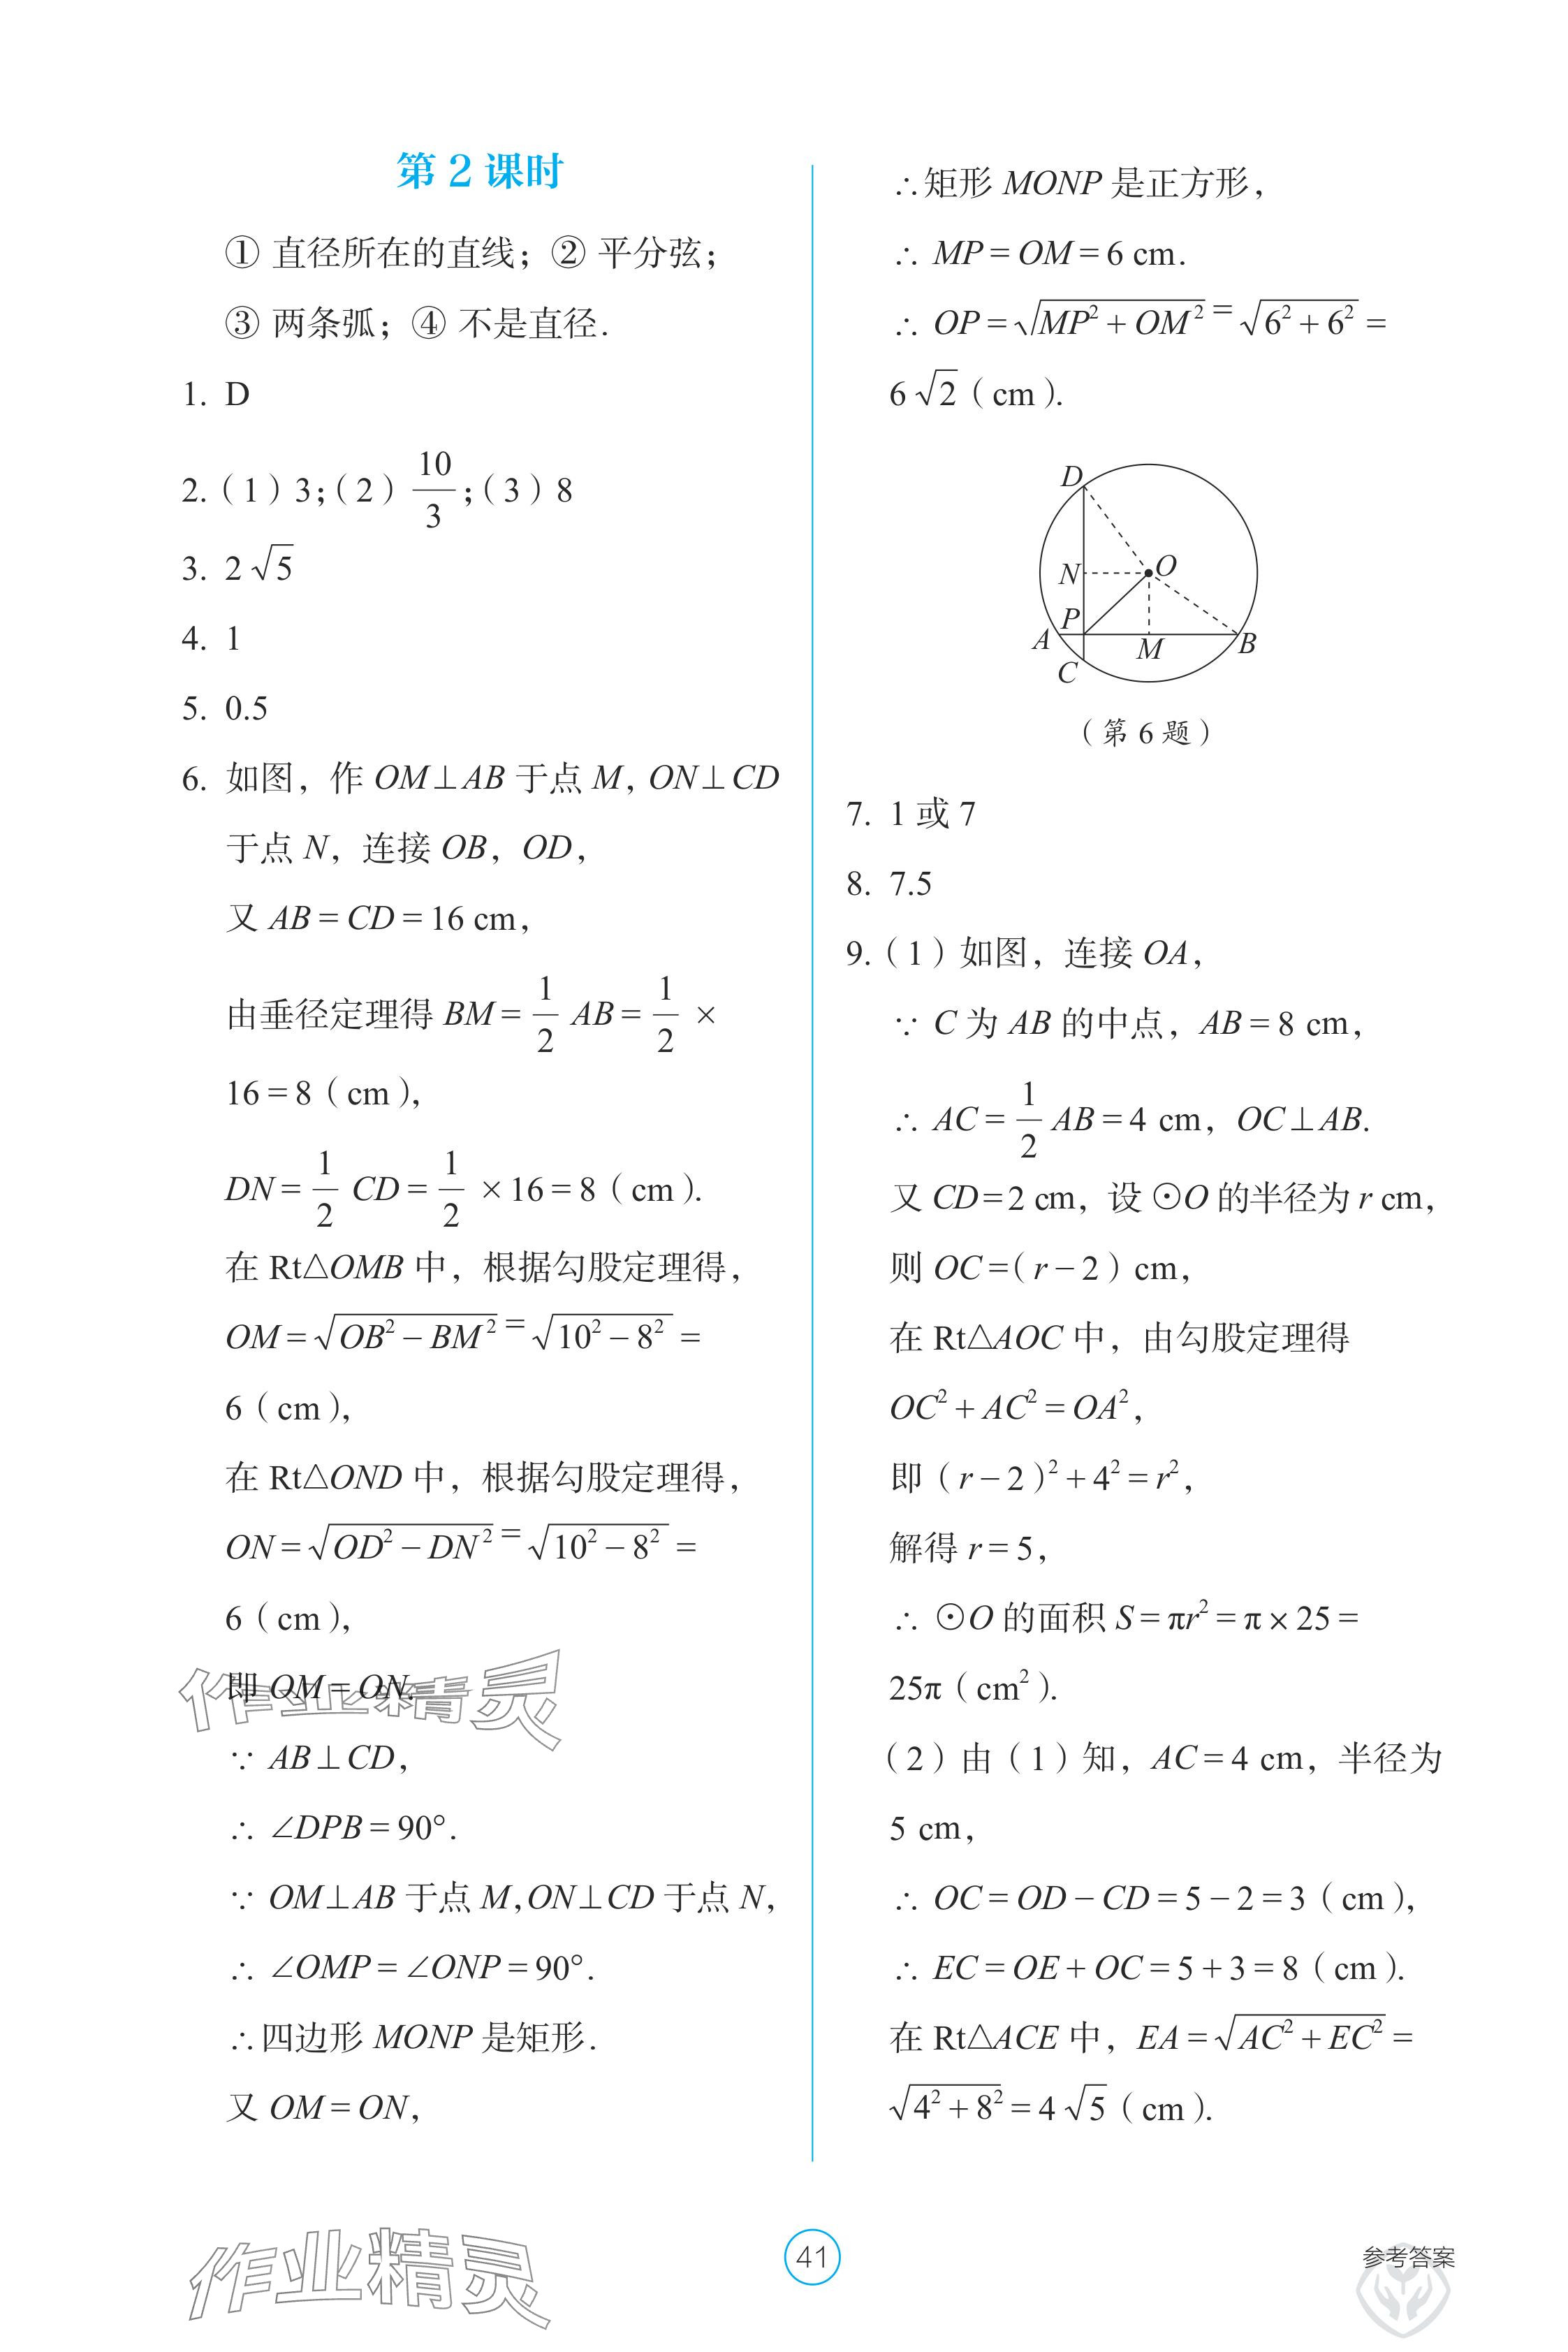 第 2 课时
① 直径所在的直线；② 平分弦；
③ 两条弧；④ 不是直径.
1. D
2.（1）3；（2）10/3；（3）8
3. 2√5
4. 1
5. 0.5
6. 如图，作 OM⊥AB 于点 M，ON⊥CD
于点 N，连接 OB，OD，
又 AB = CD = 16 cm，
由垂径定理得 BM = 1/2 AB = 1/2 ×
16 = 8（cm），
DN = 1/2 CD = 1/2 × 16 = 8（cm）.
在 Rt△OMB 中，根据勾股定理得，
OM = √(OB² − BM²) = √(10² − 8²) =
6（cm），
在 Rt△OND 中，根据勾股定理得，
ON = √(OD² − DN²) = √(10² − 8²) =
6（cm），
即 OM = ON.
∵ AB⊥CD，
∴ ∠DPB = 90°.
∵ OM⊥AB 于点 M，ON⊥CD 于点 N，
∴ ∠OMP = ∠ONP = 90°.
∴四边形 MONP 是矩形.
又 OM = ON，
∴矩形 MONP 是正方形，
∴ MP = OM = 6 cm.
∴ OP = √(MP² + OM²) = √(6² + 6²) =
6√2（cm）.
D
N
O
P
A
M
B
C
（第 6 题）
7. 1 或 7
8. 7.5
9.（1）如图，连接 OA，
∵ C 为 AB 的中点，AB = 8 cm，
∴ AC = 1/2 AB = 4 cm，OC⊥AB.
又 CD = 2 cm，设 ⊙O 的半径为 r cm，
则 OC =（r − 2）cm，
在 Rt△AOC 中，由勾股定理得
OC² + AC² = OA²，
即（r − 2）² + 4² = r²，
解得 r = 5，
∴ ⊙O 的面积 S = πr² = π × 25 =
25π（cm²）.
（2）由（1）知，AC = 4 cm，半径为
5 cm，
∴ OC = OD − CD = 5 − 2 = 3（cm），
∴ EC = OE + OC = 5 + 3 = 8（cm）.
在 Rt△ACE 中，EA = √(AC² + EC²) =
√(4² + 8²) = 4√5（cm）.
作业精灵
作业精灵
41
参考答案